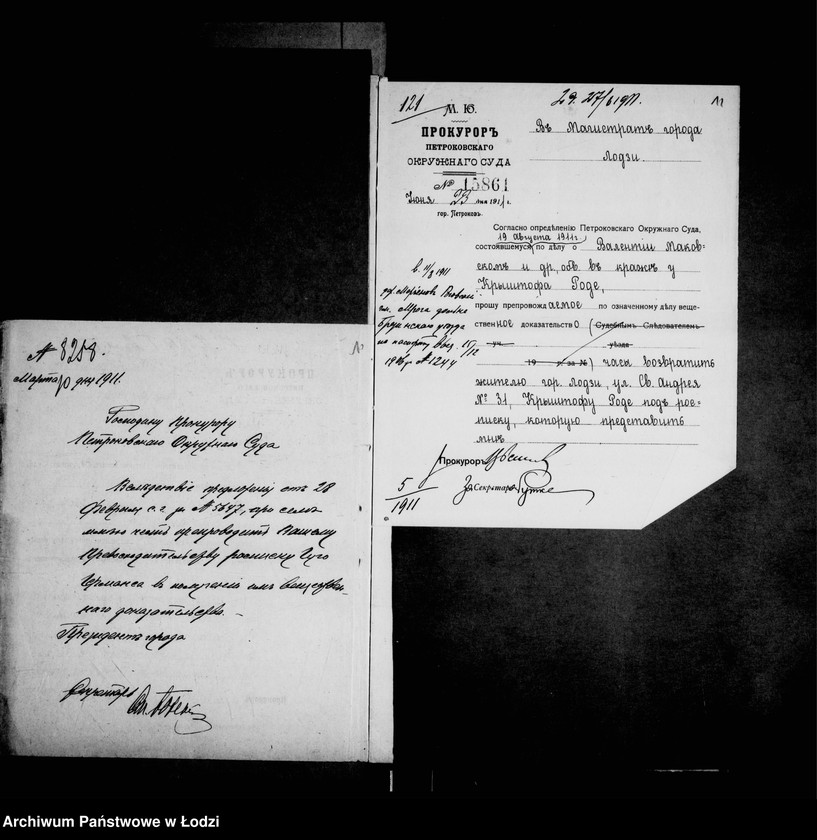 № 8258.
Марта 10 дня 1911.
Господину Прокурору
Петроковского Окружного Суда
Вследствие предложения от 28
февраля с. г. за № 5647, при семъ
имею честь препроводить Вашему
Превосходительству росписку Гуго
въ получении имъ веществен-
наго доказательства. –
Президентъ города
Секретарь
121
М. Ю.
ПРОКУРОРЪ
ПЕТРОКОВСКАГО
ОКРУЖНАГО СУДА
№ 15861
Июня 23 дня 1911 г.
гор. Петроковъ.
29. 27/6 1911.
Въ Магистратъ города
Лодзи.
Согласно опредѣленію Петроковскаго Окружнаго Суда,
19 августа 1911 г.
состоявшемуся по дѣлу о Валентіи Маков-
скомъ и др., обв. въ кражѣ у
Крыштофа Роде,
прошу препровождаемое по означенному дѣлу веще-
ственное доказательство (Судебнымъ Слѣдователемъ
уч. уѣзда
19 г. за №) часы возвратить
жителю гор. Лодзи, ул. Св. Андрея
№ 31, Крыштофу Роде подъ рос-
писку, которую представить
мнѣ.
Прокуроръ
За Секретаря
5/1911
уѣзда
по паспорту
№ 1244
Archiwum Państwowe w Łodzi